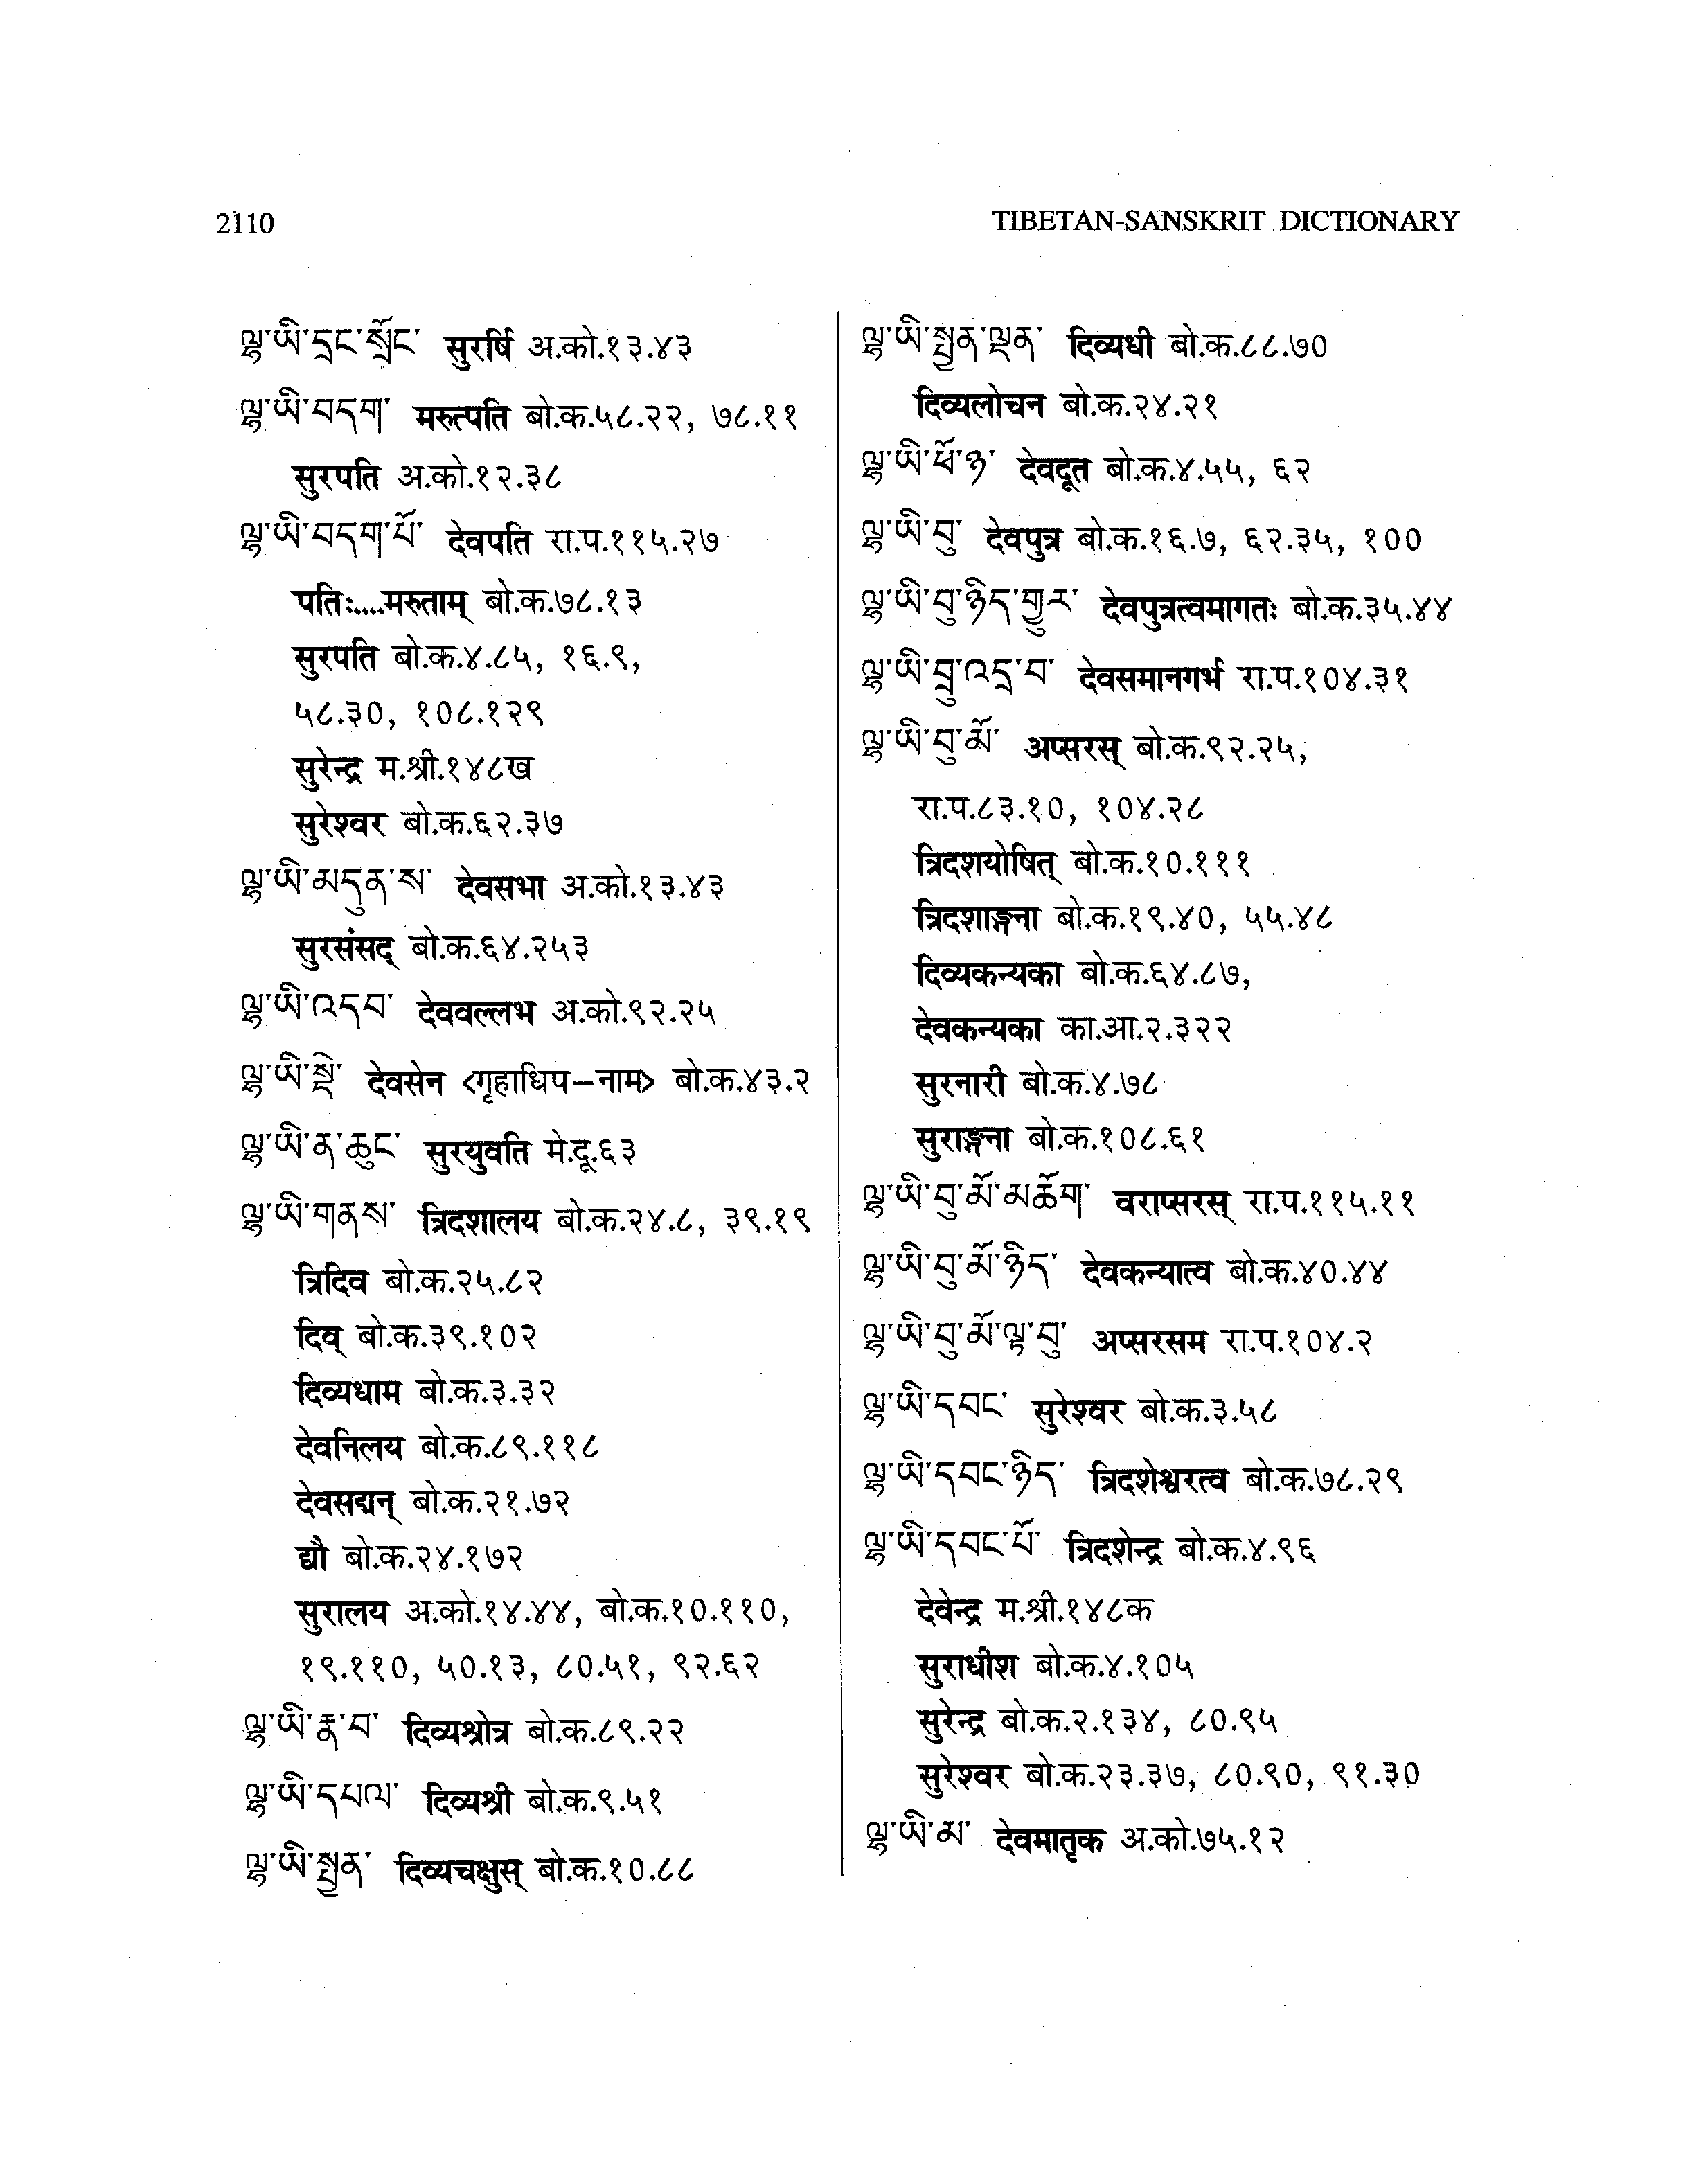 2110
TIBETAN-SANSKRIT DICTIONARY
ལྷ་ཡི་དྲང་སྲོང་ सुरर्षि अ.को.१३.४३
ལྷ་ཡི་བདག་ मरुत्पति बो.क.५८.२२, ७८.११
सुरपति अ.को.१२.३८
ལྷ་ཡི་བདག་པོ་ देवपति रा.प.११५.२७
पतिः....मरुताम् बो.क.७८.१३
सुरपति बो.क.४.८५, १६.९,
५८.३०, १०८.१२९
सुरेन्द्र म.श्री.१४८ख
सुरेश्वर बो.क.६२.३७
ལྷ་ཡི་མདུན་ས་ देवसभा अ.को.१३.४३
सुरसंसद् बो.क.६४.२५३
ལྷ་ཡི་འདབ་ देववल्लभ अ.को.९२.२५
ལྷ་ཡི་སྡེ་ देवसेन <गृहाधिप–नाम> बो.क.४३.२
ལྷ་ཡི་ན་ཆུང་ सुरयुवति मे.दू.६३
ལྷ་ཡི་གནས་ त्रिदशालय बो.क.२४.८, ३९.१९
त्रिदिव बो.क.२५.८२
दिव् बो.क.३९.१०२
दिव्यधाम बो.क.३.३२
देवनिलय बो.क.८९.११८
देवसद्मन् बो.क.२१.७२
द्यौ बो.क.२४.१७२
सुरालय अ.को.१४.४४, बो.क.१०.११०,
१९.११०, ५०.१३, ८०.५१, ९२.६२
ལྷ་ཡི་རྣ་བ་ दिव्यश्रोत्र बो.क.८९.२२
ལྷ་ཡི་དཔལ་ दिव्यश्री बो.क.९.५१
ལྷ་ཡི་སྤྱན་ दिव्यचक्षुस् बो.क.१०.८८
ལྷ་ཡི་སྤྱན་ལྡན་ दिव्यधी बो.क.८८.७०
दिव्यलोचन बो.क.२४.२१
ལྷ་ཡི་ཕོ་ཉ་ देवदूत बो.क.४.५५, ६२
ལྷ་ཡི་བུ་ देवपुत्र बो.क.१६.७, ६२.३५, १००
ལྷ་ཡི་བུ་ཉིད་གྱུར་ देवपुत्रत्वमागतः बो.क.३५.४४
ལྷ་ཡི་བུ་འདྲ་བ་ देवसमानगर्भ रा.प.१०४.३१
ལྷ་ཡི་བུ་མོ་ अप्सरस् बो.क.९२.२५,
रा.प.८३.१०, १०४.२८
त्रिदशयोषित् बो.क.१०.१११
त्रिदशाङ्गना बो.क.१९.४०, ५५.४८
दिव्यकन्यका बो.क.६४.८७,
देवकन्यका का.आ.२.३२२
सुरनारी बो.क.४.७८
सुराङ्गना बो.क.१०८.६१
ལྷ་ཡི་བུ་མོ་མཆོག་ वराप्सरस् रा.प.११५.११
ལྷ་ཡི་བུ་མོ་ཉིད་ देवकन्यात्व बो.क.४०.४४
ལྷ་ཡི་བུ་མོ་ལྟ་བུ་ अप्सरसम रा.प.१०४.२
ལྷ་ཡི་དབང་ सुरेश्वर बो.क.३.५८
ལྷ་ཡི་དབང་ཉིད་ त्रिदशेश्वरत्व बो.क.७८.२९
ལྷ་ཡི་དབང་པོ་ त्रिदशेन्द्र बो.क.४.९६
देवेन्द्र म.श्री.१४८क
सुराधीश बो.क.४.१०५
सुरेन्द्र बो.क.२.१३४, ८०.९५
सुरेश्वर बो.क.२३.३७, ८०.९०, ९१.३०
ལྷ་ཡི་མ་ देवमातृक अ.को.७५.१२